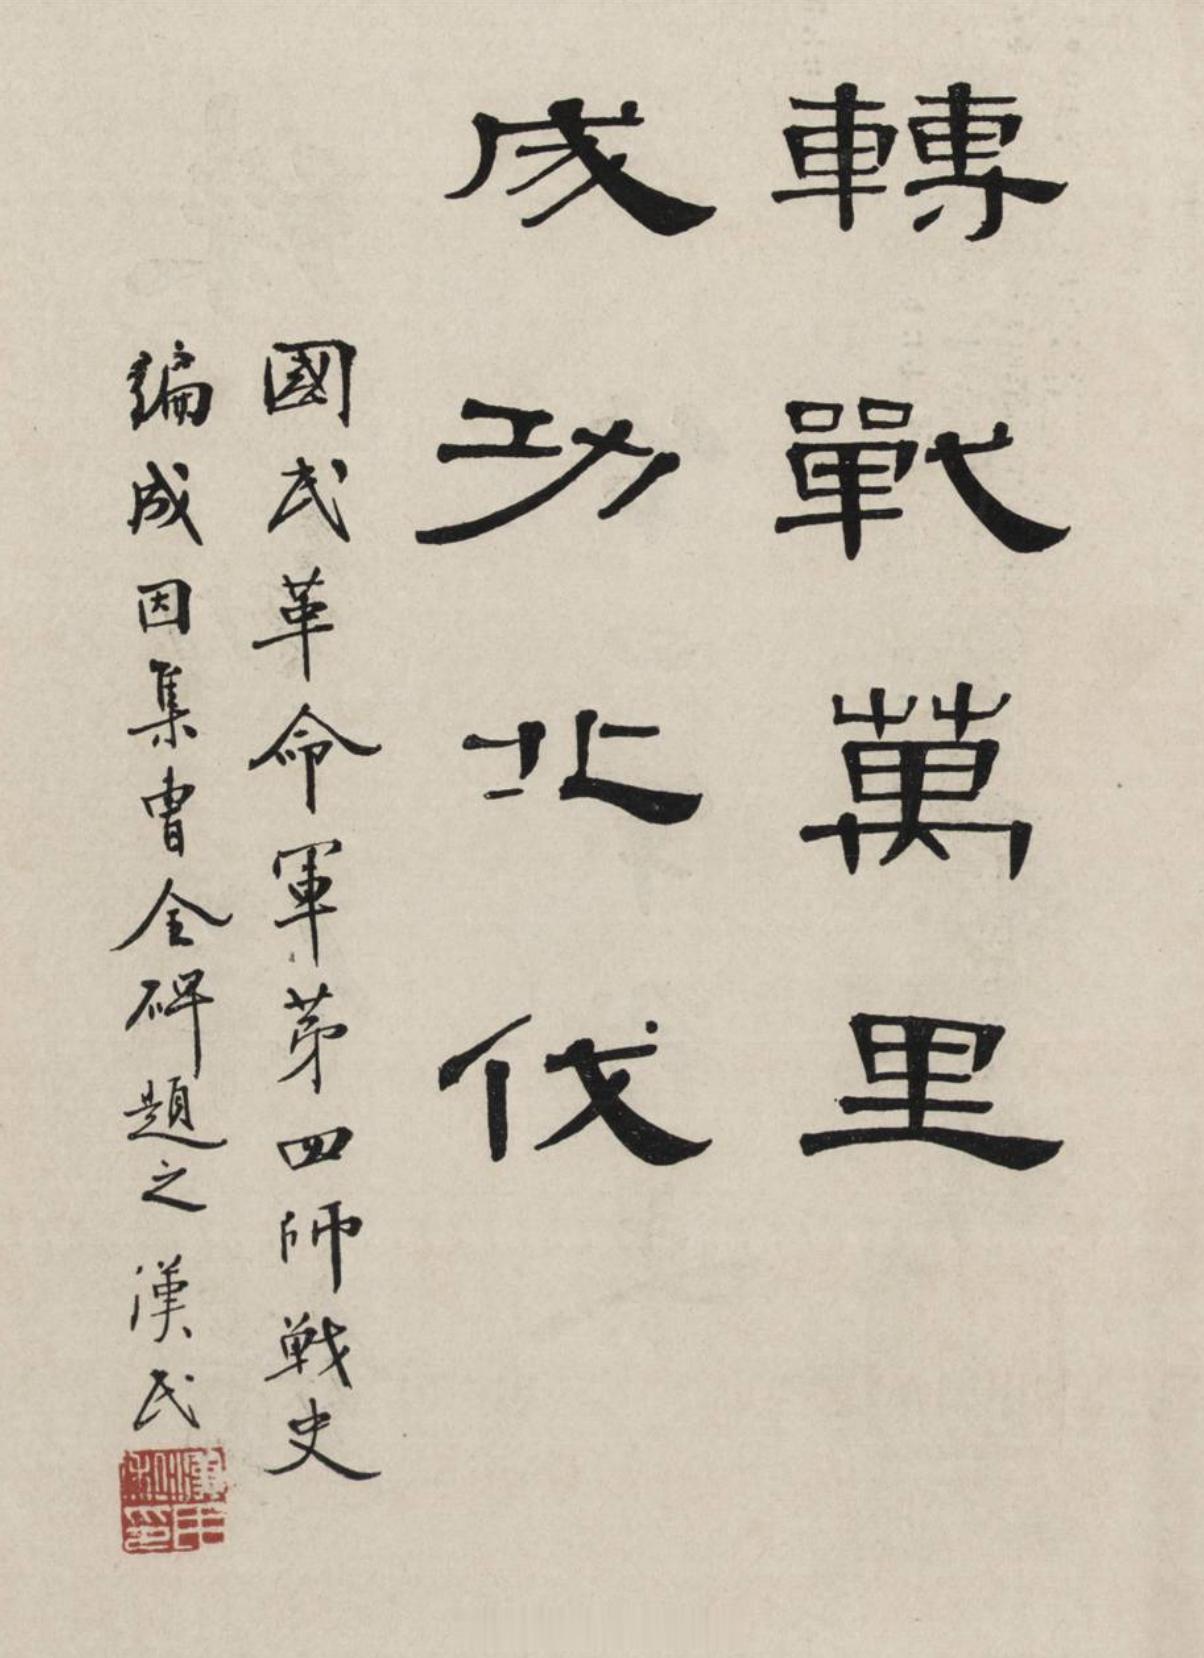 轉戰萬里
成功北伐
國民革命軍第四師戰史
編成因集曹全碑題之 漢民
漢民私印